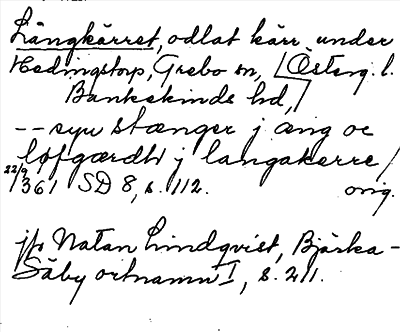 Långkärret, odlat kärr under
Hedingstorp, Grebo sn, Österg. l.
Bankekinds hd,
-- syu stænger j æng oc
løfgærdh j langakerre /
22/9 1361 SD 8, s. 112. orig.
jfr Natan Lindqvist, Bjärka-
Säby ortnamn I, s. 211.